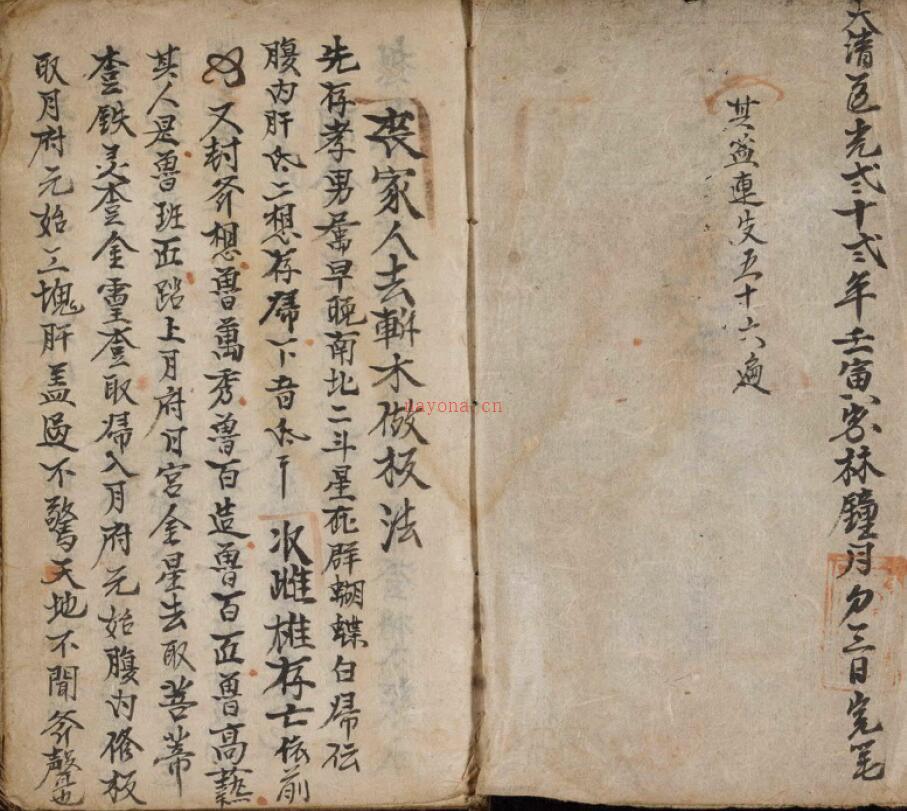 大清道光弍十弍年壬寅歲林鐘月勿三日完笔
其蓋連皮五十六遍
丧家人去斬木做板法
先存孝男奮早晚南北二斗星在群蝴蝶白歸伝
腹内肝氐二想存歸下音氐丅 次雌雄存亡依前
又封斧想魯萬秀魯百造魯百匠魯高藝
其人是魯班匠踏上月府月宮金星去取菩蒂
查鉄灵查金霊查取歸入月府元始腹内修板
取月府元始三塊肝盖過不驚天地不聞斧聲也
nayona.cn